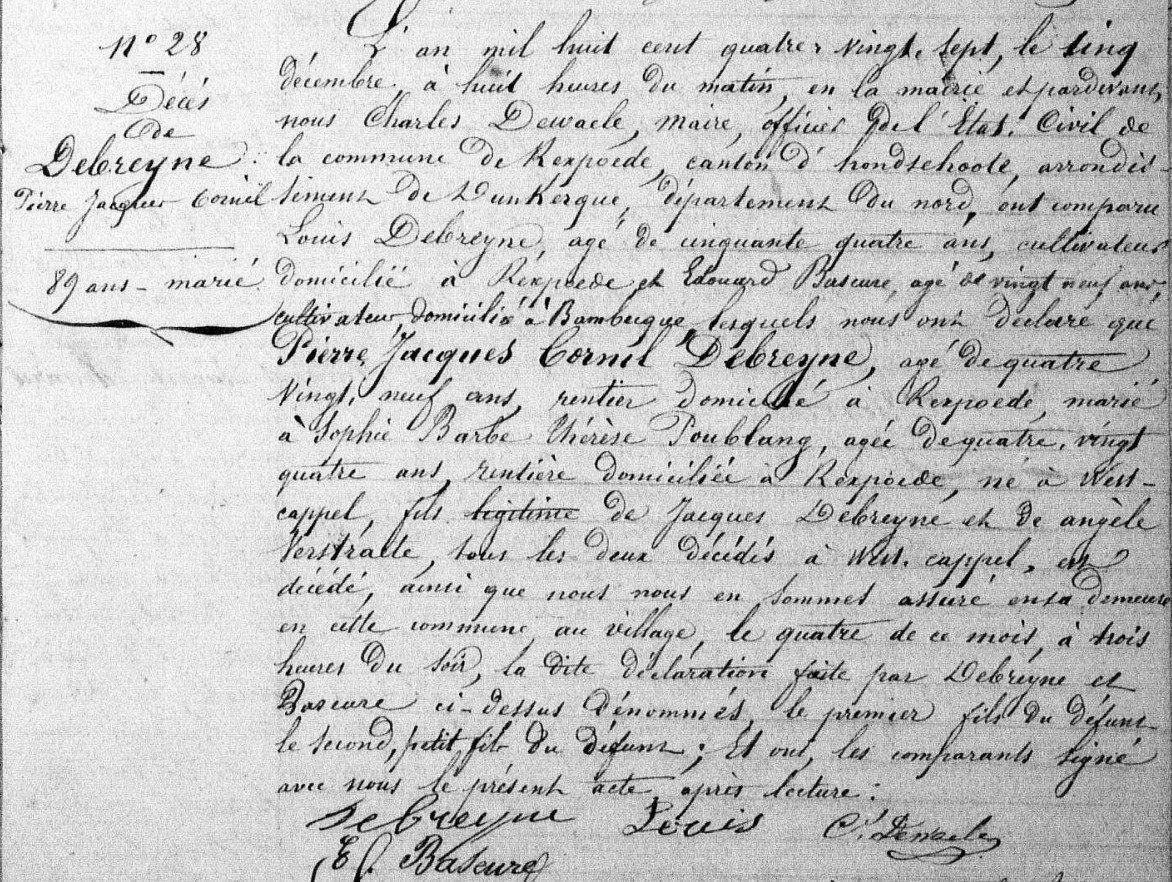 N° 28
Décès
de
Debreyne
Pierre Jacques Cornil
89 ans - marié
L'an mil huit cent quatre-vingt-sept, le cinq
décembre, à huit heures du matin, en la mairie et pardevant,
nous Charles Dewaele, maire, officier de l'État-Civil de
la commune de Rexpoëde, canton d'hondschoote, arrondis-
sement de Dunkerque, département du nord, ont comparu
Louis Debreyne, agé de cinquante quatre ans, cultivateur
domicilié à Rexpoëde et Edouard Baseure, agé de vingt neuf ans,
cultivateur, domicilié à Bambecque, lesquels nous ont déclaré que
Pierre Jacques Cornil Debreyne, agé de quatre
vingt-neuf ans, rentier domicilié à Rexpoëde, marié
à Sophie Barbe Thérèse Toublanq, agée de quatre-vingt
quatre ans, rentière domiciliée à Rexpoëde, né à West-
cappel, fils légitime de Jacques Debreyne et de angèle
Verstraete, tous les deux décédés à West-cappel, est
décédé, ainsi que nous nous en sommes assuré en sa demeure
en cette commune, au village, le quatre de ce mois, à trois
heures du soir, la dite déclaration faite par Debreyne et
Baseure ci-dessus dénommés, le premier fils du défunt
le second, petit fils du défunt ; Et ont, les comparants signé
avec nous le présent acte, après lecture :
Debreyne Louis C. Dewaele
Ed. Baseure